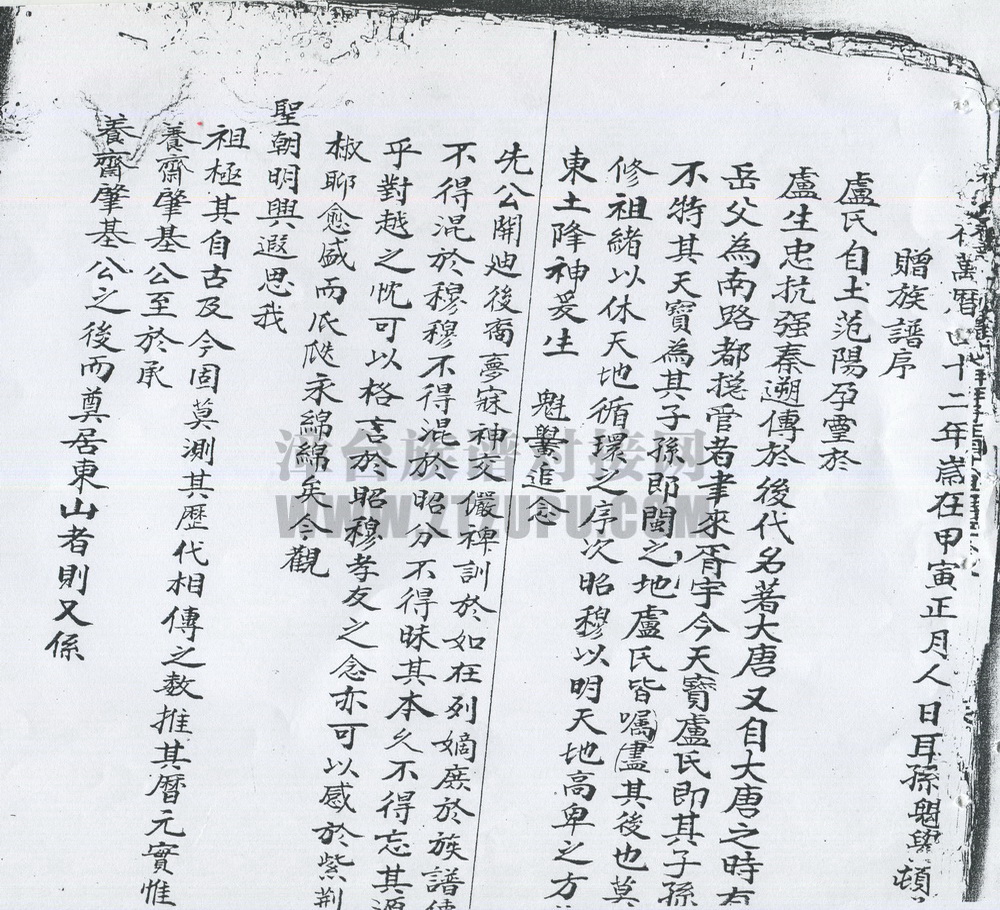 萬曆四十二年歲在甲寅正月人日耳孫魁鸞頓
贈族譜序
盧氏自土范陽孕靈於
盧生忠抗强秦遡傳於後代名著大唐又自大唐之時有
岳父為南路都揔管者聿來胥宇今天寶盧氏即其子孫
不特其天寶為其子孫即閩之地盧氏皆嘱儘其後也莫
修祖緒以休天地循環之序次昭穆以明天地高卑之方
東土降神爰生 魁鸞追念
先公開廸後裔夢寐神交儼裨訓於如在列嫡庶於族譜傳
不得混於穆穆不得混於昭分不得昧其本久不得忘其源
乎對越之忱可以格言於昭穆孝友之念亦可以感於紫荆
椒聊愈盛而瓜瓞永綿綿矣今觀
聖朝明興遐思我
祖極其自古及今固莫測其歷代相傳之数推其曆元實惟
養齋肇基公至於承
養齋肇基公之後而奠居東山者則又係
WWW.ZTZUPU.COM